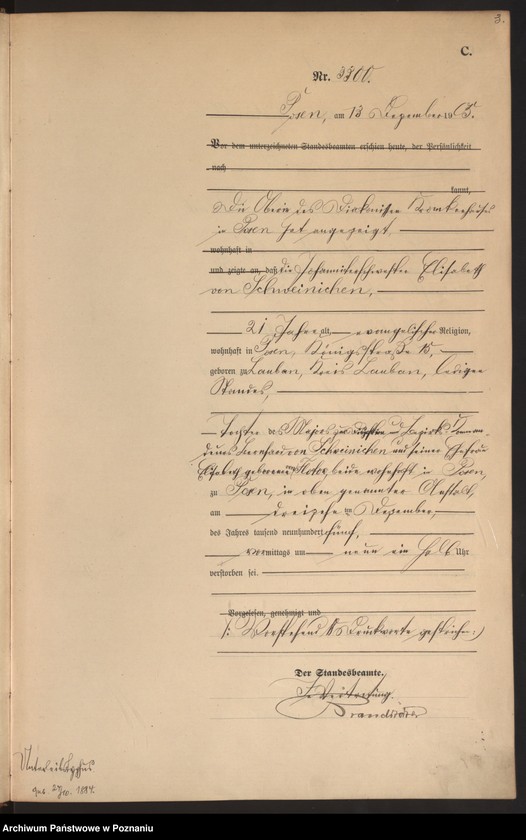 3.
C.
Nr. 3300.
Posen, am 13 Dezember 1905.
Vor dem unterzeichneten Standesbeamten erschien heute, der Persönlichkeit
nach
kannt,
Die Oberin des Diakonissen Krankenhauses
in Posen hat angezeigt,
wohnhaft in
und zeigte an, daß die Johanniterschwester Elisabeth
von Schweinichen,
21 Jahre alt, evangelischer Religion,
wohnhaft in Posen, Königstraße 15,
geboren zu Lauban, Kreis Lauban, ledigen
Standes,
Tochter des Majors zur und Bezirks Komman-
deurs Bernhard von Schweinichen und seiner Ehefrau
Elisabeth geborenen von beide wohnhaft in Posen,
zu Posen, in oben genannter Anstalt,
am dreizehnten Dezember,
des Jahres tausend neunhundert fünf,
vormittags um neun ein halb Uhr
verstorben sei.
Vorgelesen, genehmigt und
/: Vorstehend Druckworte gestrichen :/
Der Standesbeamte.
In Vertretung.
Unterleibstyphus
geb. 1884.
Archiwum Państwowe w Poznaniu